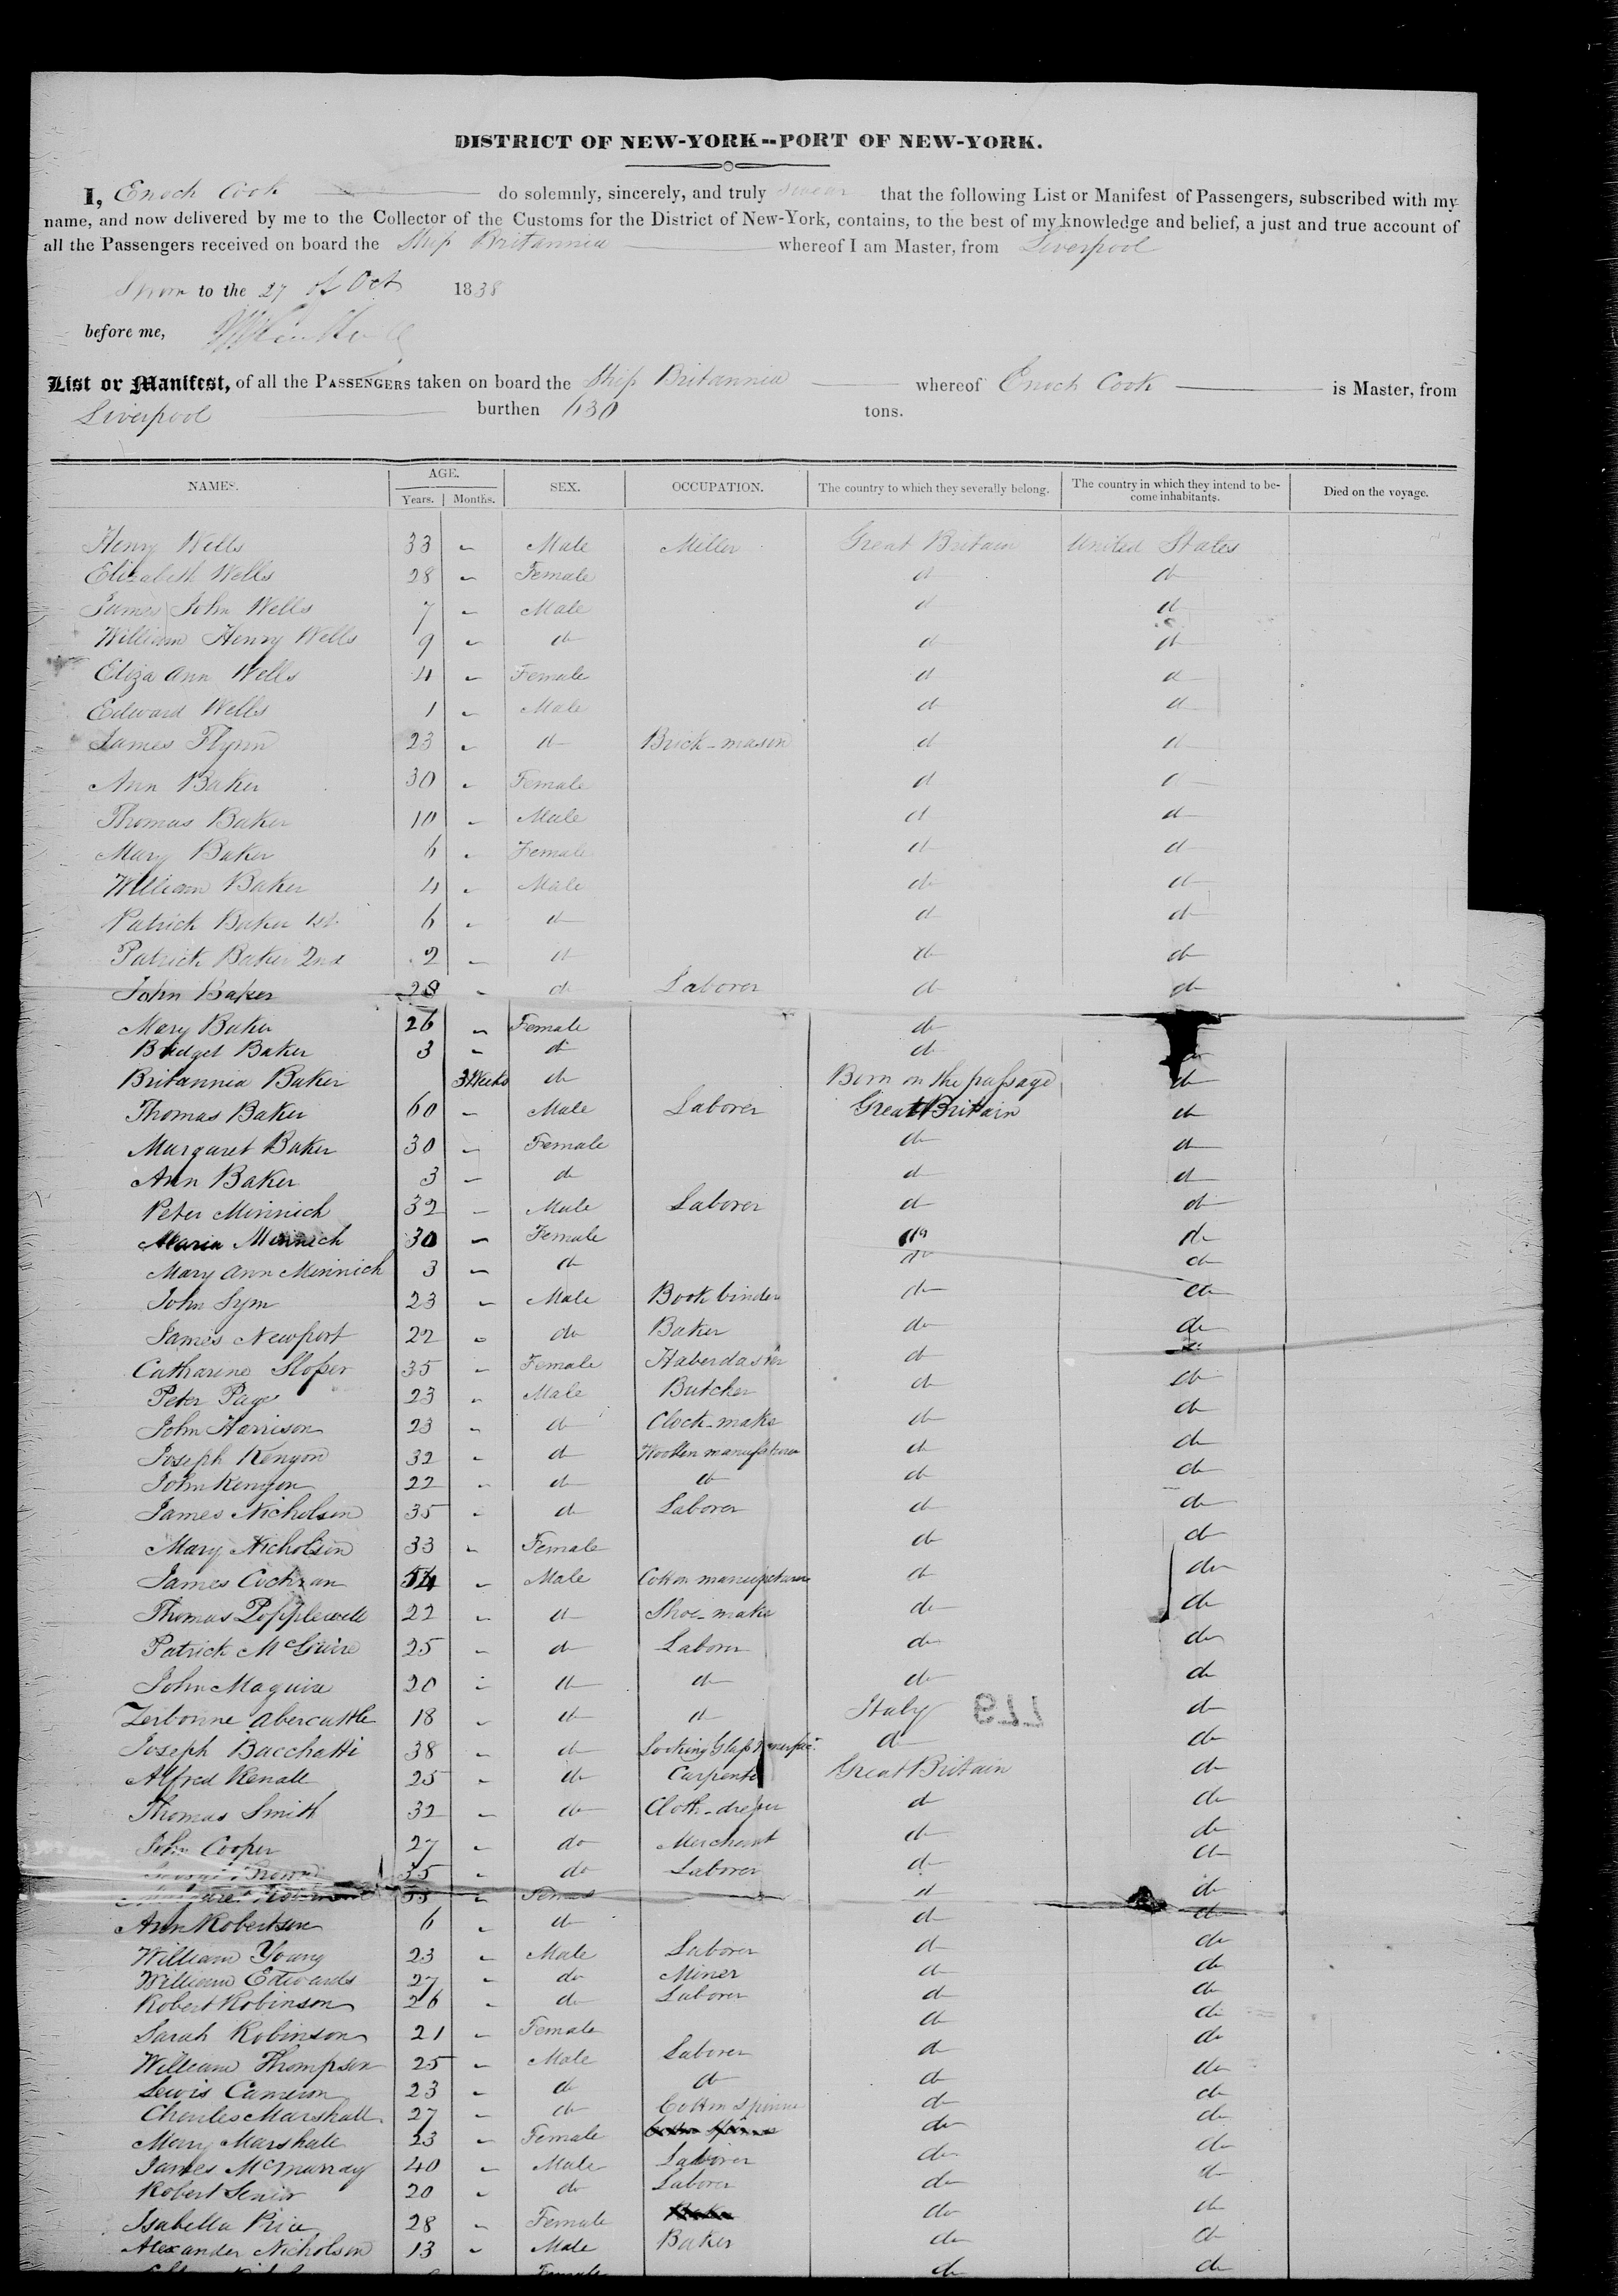 DISTRICT OF NEW-YORK--PORT OF NEW-YORK.
I, Enoch Cook do solemnly, sincerely, and truly swear that the following List or Manifest of Passengers, subscribed with my
name, and now delivered by me to the Collector of the Customs for the District of New-York, contains, to the best of my knowledge and belief, a just and true account of
all the Passengers received on board the Ship Britannia whereof I am Master, from Liverpool
Sworn to the 27 of Oct 1838
before me,
List or Manifest, of all the PASSENGERS taken on board the Ship Britannia whereof Enoch Cook is Master, from
Liverpool burthen 630 tons.
NAMES. AGE. Years. Months. SEX. OCCUPATION. The country to which they severally belong. The country in which they intend to become inhabitants. Died on the voyage.
Henry Wells 33 " Male Miller Great Britain United States
Elizabeth Wells 28 " Female d d
James John Wells 7 " Male d d
William Henry Wells 9 " d d d
Eliza Ann Wells 4 " Female d d
Edward Wells 1 " Male d d
James Flynn 23 " d Brick-mason d d
Ann Baker 30 " Female d d
Thomas Baker 10 " Male d d
Mary Baker 6 " Female d d
William Baker 4 " Male do d
Patrick Baker 1st 6 " d d do
Patrick Baker 2nd 2 " d do do
John Baker 28 " do Laborer do do
Mary Baker 26 " Female do
Bridget Baker 3 " d do do
Britannia Baker 3 Weeks do Born on the passage do
Thomas Baker 60 " Male Laborer Great Britain do
Margaret Baker 30 " Female do d
Ann Baker 3 " do d d
Peter Minnich 32 " Male Laborer d do
Maria Minnich 30 " Female do do
Mary Ann Minnich 3 " do do do
John Sym 23 " Male Book binder do do
James Newport 22 " do Baker do do
Catharine Sloper 35 " Female Haberdasher do do
Peter Page 23 " Male Butcher do do
John Harrison 23 " do Clock-maker do do
Joseph Kenyon 32 " d Woollen manufacturer do do
John Kenyon 22 " do do do do
James Nicholson 35 " do Laborer do do
Mary Nicholson 33 " Female do do
James Cochran " Male Cotton manufacturer do do
Thomas Popplewell 22 " d Shoe-maker do do
Patrick McGuire 25 " do Laborer do do
John Maguire 20 " do do do do
Zerbonne Abercattle 18 " do d Italy do
779
Joseph Bacchatti 38 " do Looking Glass Manufac. do do
Alfred Kenall 25 " do Carpenter Great Britain do
Thomas Smith 32 " do Cloth-dresser do do
John Cooper 27 " do Merchant do do
35 " do Laborer do do
Margaret " Female d do
Ann Robertson 6 " do do do
William Young 23 " Male Laborer do do
William Edwards 27 " do Miner do do
Robert Robinson 26 " do Laborer do do
Sarah Robinson 21 " Female do do
William Thompson 25 " Male Laborer do do
Lewis Cameron 23 " do do do do
Charles Marshall 27 " do Cotton Spinner do do
Mary Marshall 23 " Female do do
James McMurray 40 " Male Laborer do do
Robert Senior 20 " do Laborer do do
Isabella Price 28 " Female do do
Alexander Nicholson 13 " Male Baker do do
Female do do